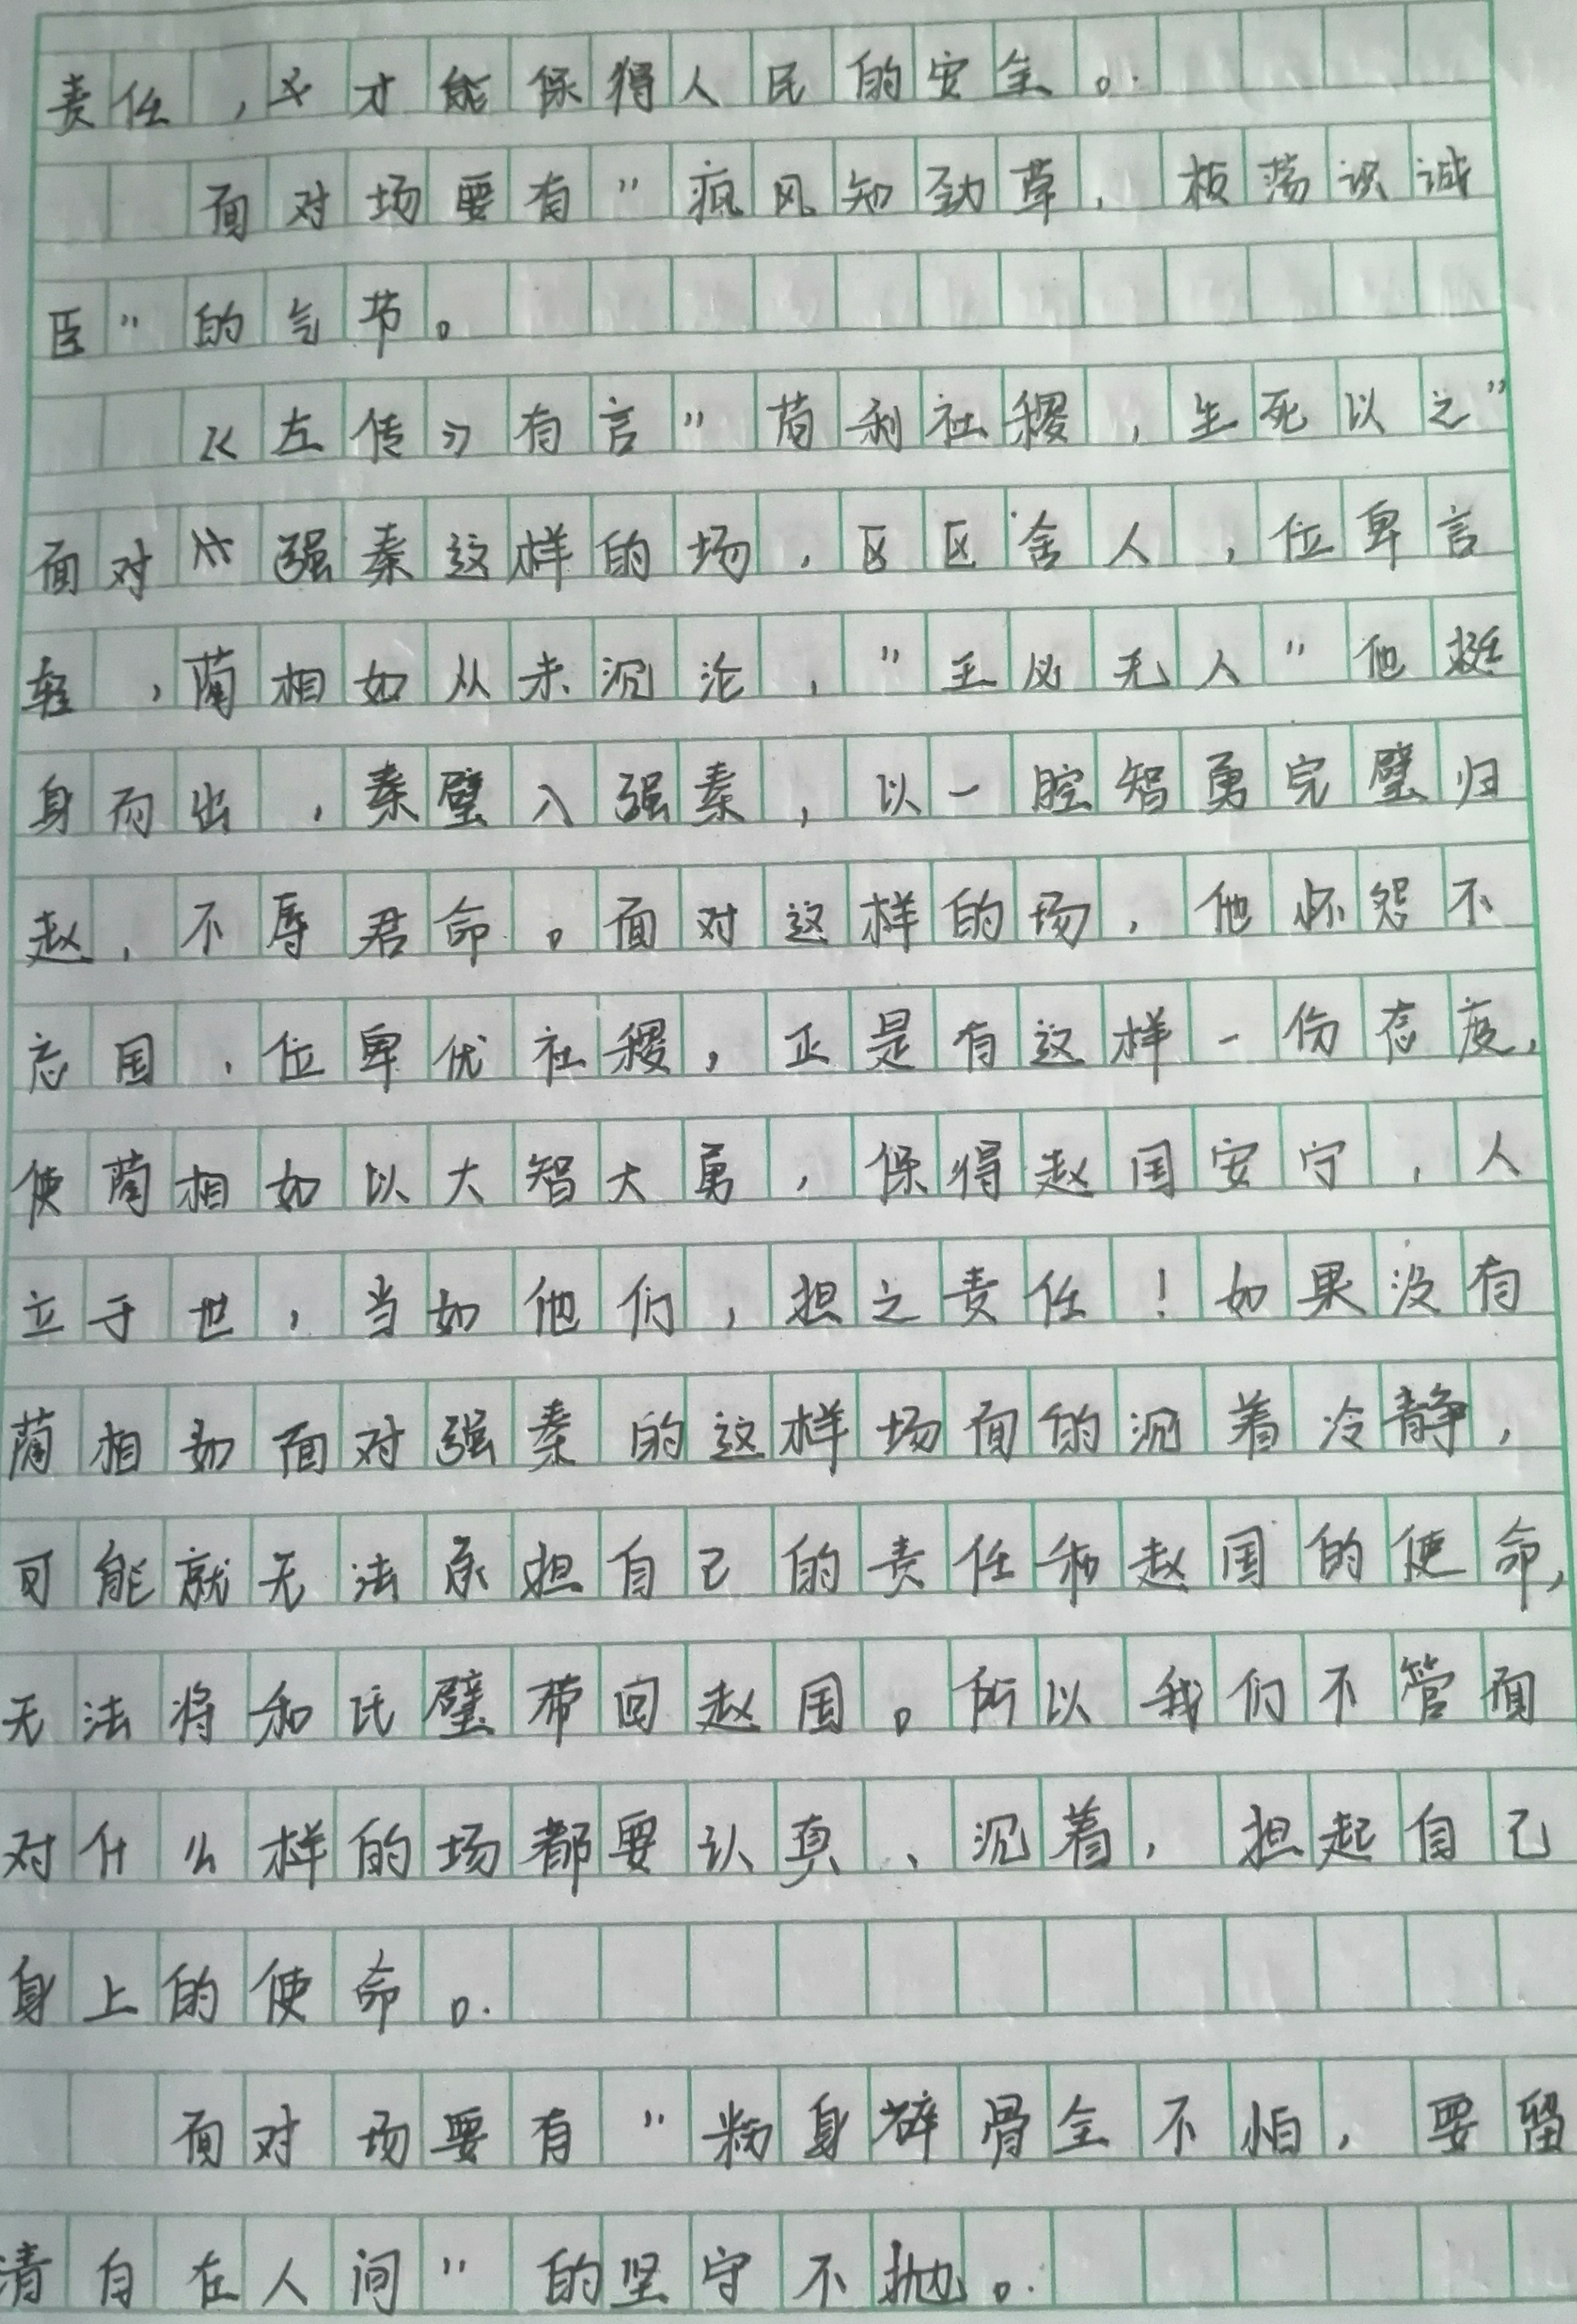 责任，才能保得人民的安全。
面对场要有"疯风知劲草，板荡识诚
臣"的气节。
《左传》有言"苟利社稷，生死以之"
面对强秦这样的场，区区舍人，位卑言
轻，蔺相如从未沉沦，"王必无人"他挺
身而出，秦璧入强秦，以一腔智勇完璧归
赵，不辱君命。面对这样的场，他怀怨不
忘国，位卑优社稷，正是有这样一份态度，
使蔺相如以大智大勇，保得赵国安宁，人
立于世，当如他们，担之责任！如果没有
蔺相如面对强秦的这样场面的沉着冷静，
可能就无法承担自己的责任和赵国的使命，
无法将和氏璧带回赵国。所以我们不管面
对什么样的场都要认真、沉着，担起自己
身上的使命。
面对场要有"粉身碎骨全不怕，要留
清白在人间"的坚守不抛。